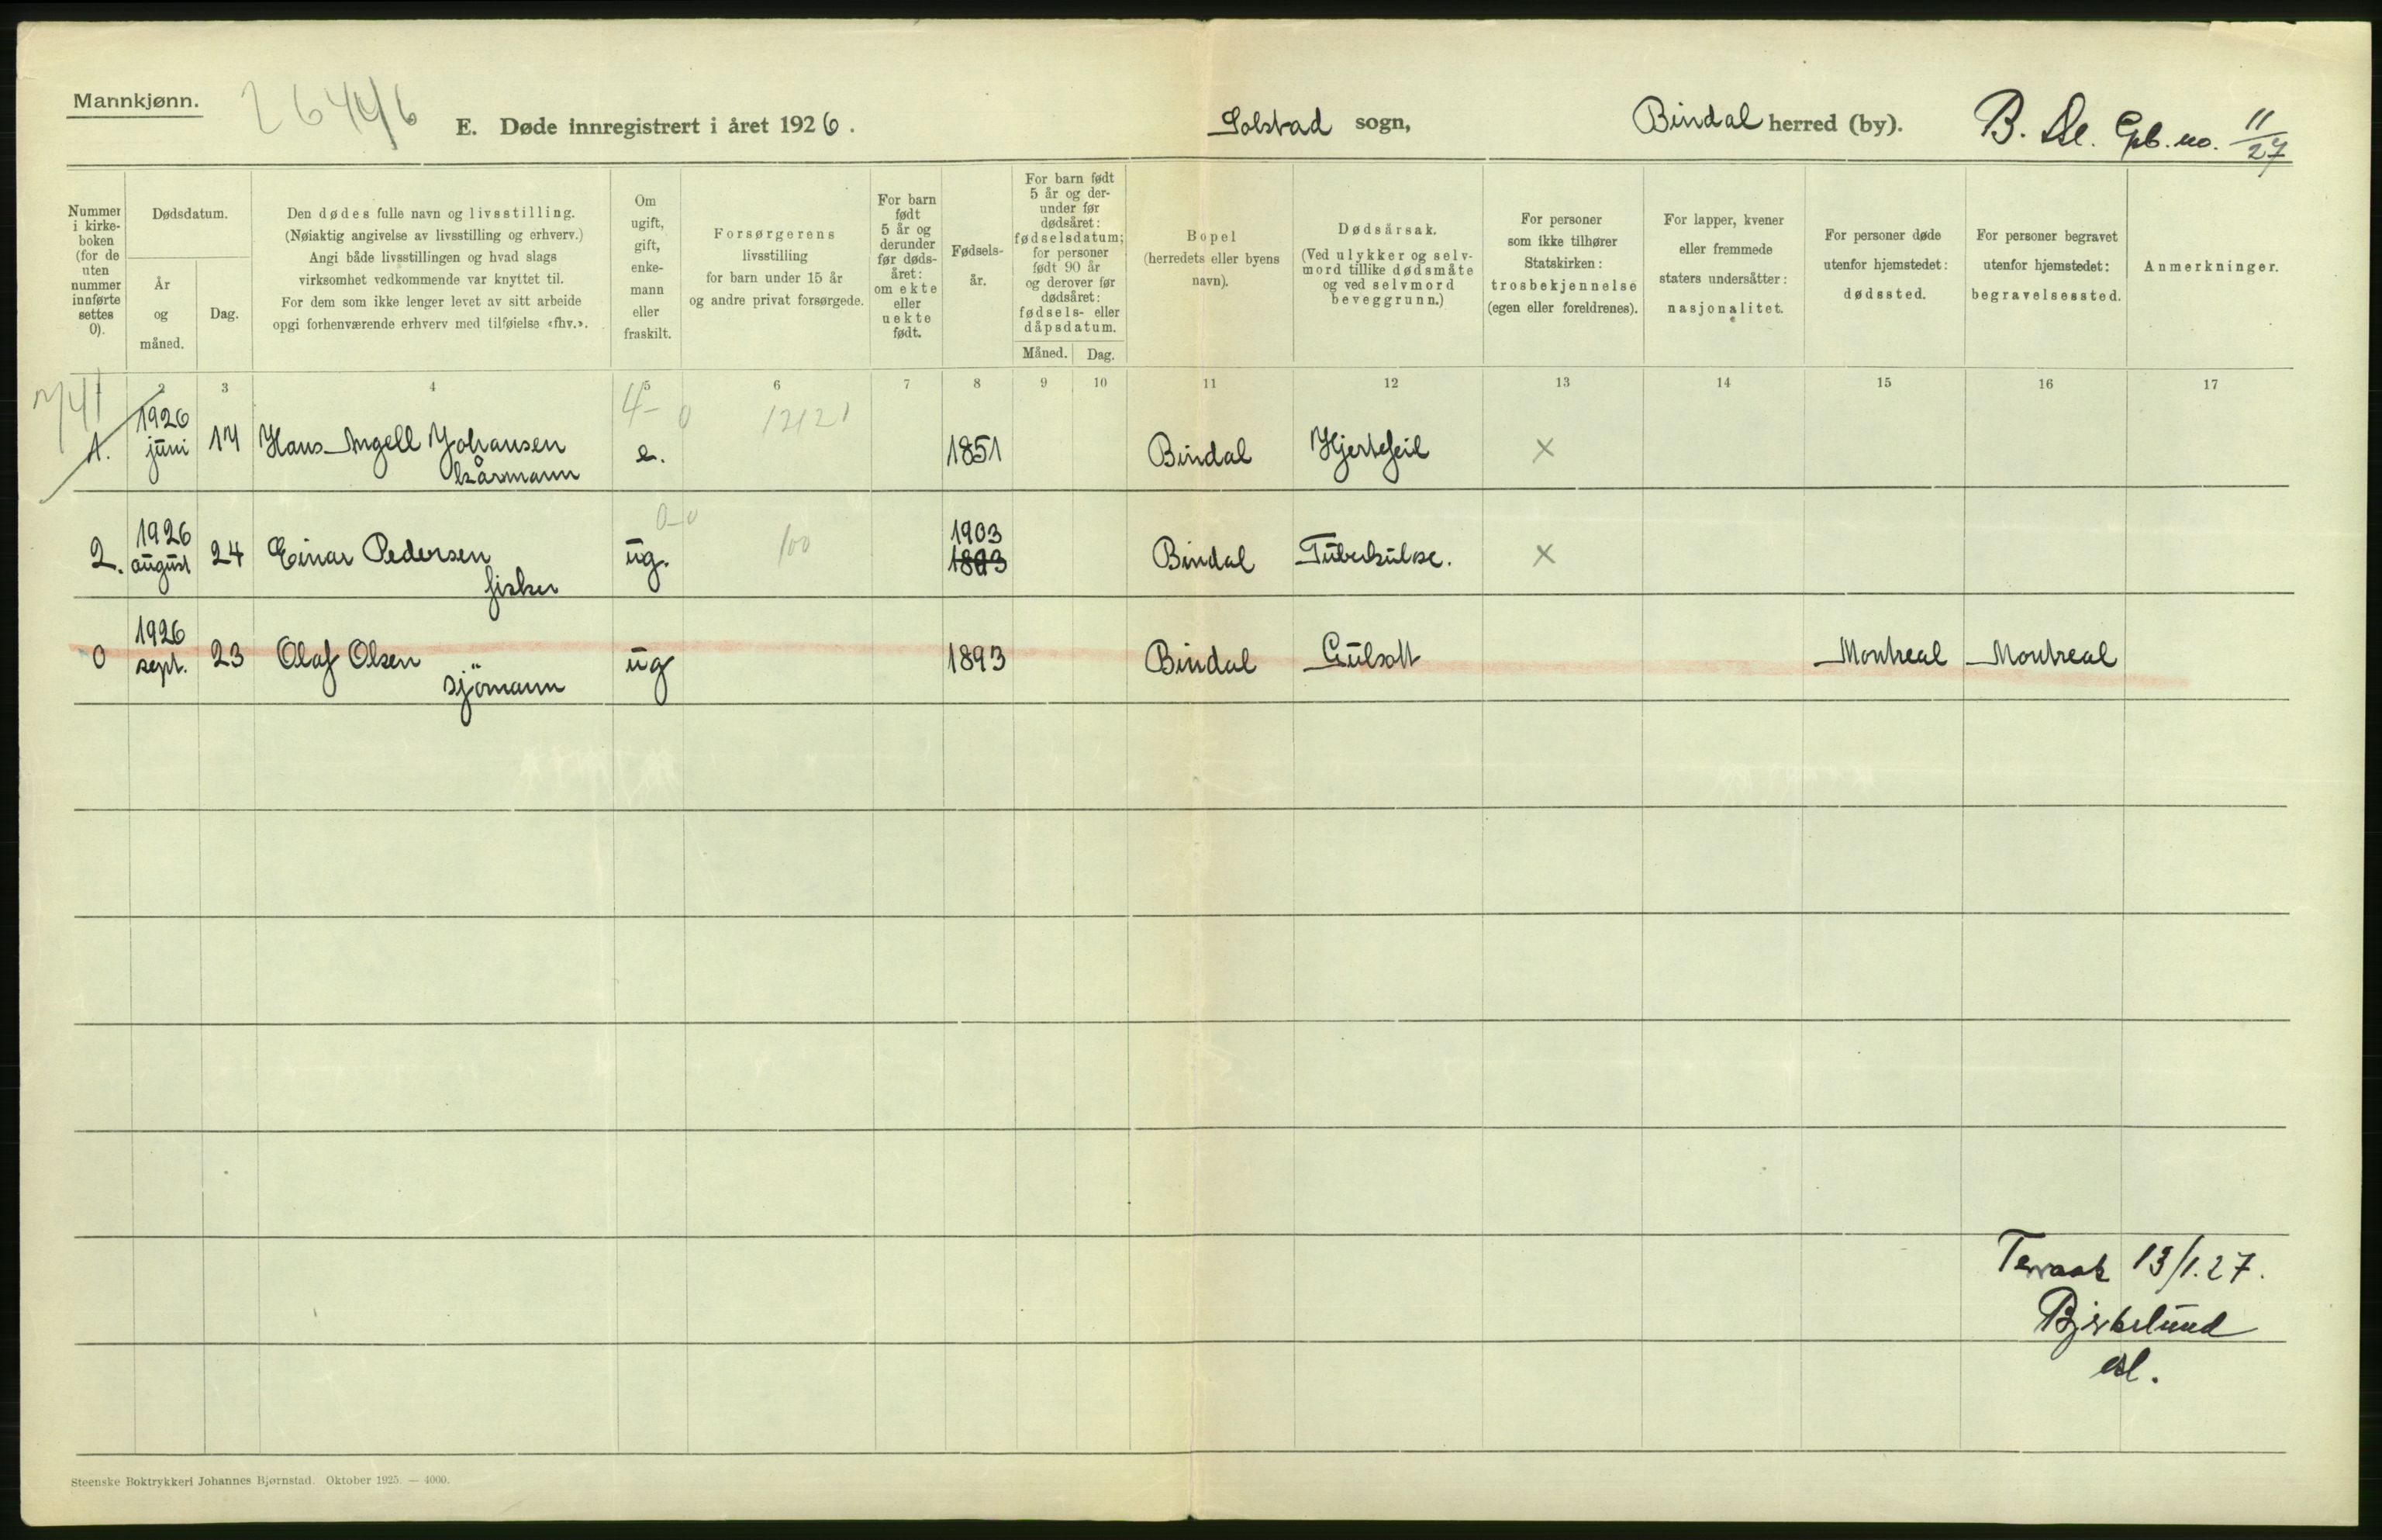 Mannkjønn.
26446
E. Døde innregistrert i året 1926.
Solstad sogn,
Bindal herred (by).
B. Gpb. no. 11/27
Nummer i kirke-boken (for de uten nummer innførte settes 0).
Dødsdatum.
År og måned.
Dag.
Den dødes fulle navn og livsstilling.
(Nøiaktig angivelse av livsstilling og erhverv.)
Angi både livsstillingen og hvad slags
virksomhet vedkommende var knyttet til.
For dem som ikke lenger levet av sitt arbeide
opgi forhenværende erhverv med tilføielse «fhv.».
Om ugift, gift, enke-mann eller fraskilt.
Forsørgerens
livsstilling
for barn under 15 år
og andre privat forsørgede.
For barn født 5 år og derunder før døds-året: om ekte eller uekte født.
Fødsels-år.
For barn født 5 år og der-under før dødsåret: fødselsdatum; for personer født 90 år og derover før dødsåret: fødsels- eller dåpsdatum.
Måned. Dag.
Bopel
(herredets eller byens
navn).
Dødsårsak.
(Ved ulykker og selv-
mord tillike dødsmåte
og ved selvmord
beveggrunn.)
For personer
som ikke tilhører
Statskirken:
trosbekjennelse
(egen eller foreldrenes).
For lapper, kvener
eller fremmede
staters undersåtter:
nasjonalitet.
For personer døde
utenfor hjemstedet:
dødssted.
For personer begravet
utenfor hjemstedet:
begravelsessted.
Anmerkninger.
1 2 3 4 5 6 7 8 9 10 11 12 13 14 15 16 17
4- 0 12121
1. 1926 juni 14 Hans Angell Johansen kårmann e. 1851 Bindal Hjertefeil x
0-0 100
2. 1926 august 24 Einar Pedersen fisker ug. 1903 1893 Bindal Tuberkulose. x
0 1926 sept. 23 Olaf Olsen sjömann ug 1893 Bindal Gulsott Montreal Montreal
Terraak 13/1.27.
Bjirkelund
Steenske Boktrykkeri Johannes Bjørnstad. Oktober 1925. — 4000.